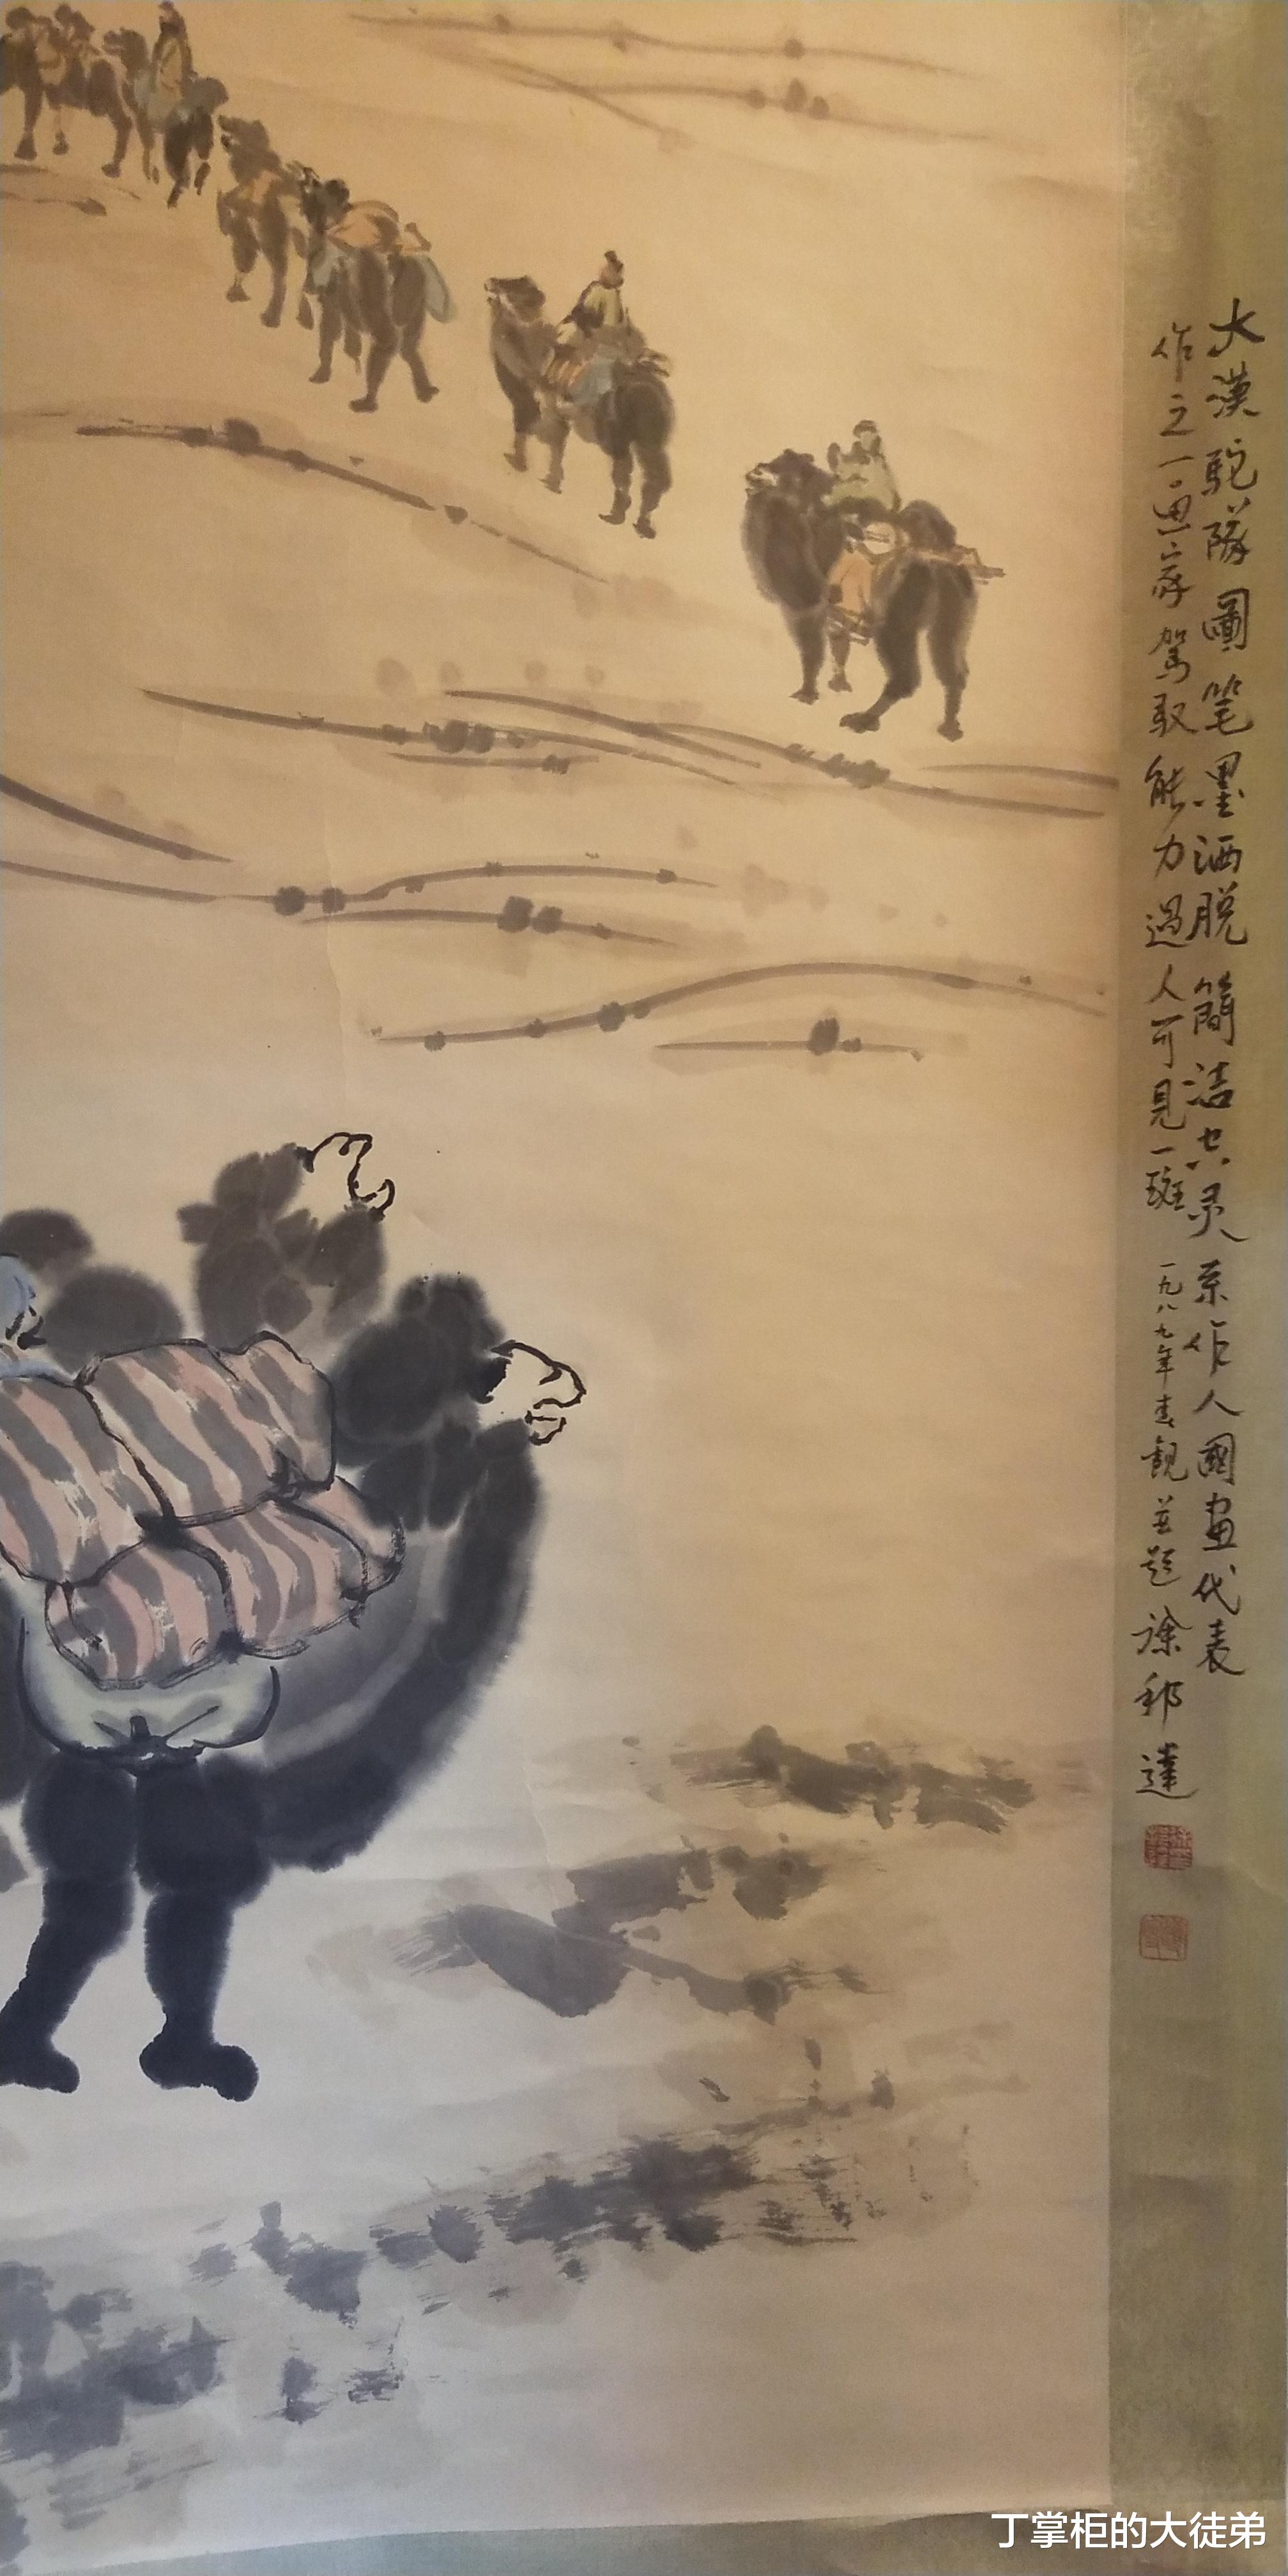 大漠駝隊圖笔墨洒脱簡洁空灵系作人國畫代表
作之一画家驾驭能力過人可見一斑 一九八九年春觀並题 徐邦達
丁掌柜的大徒弟